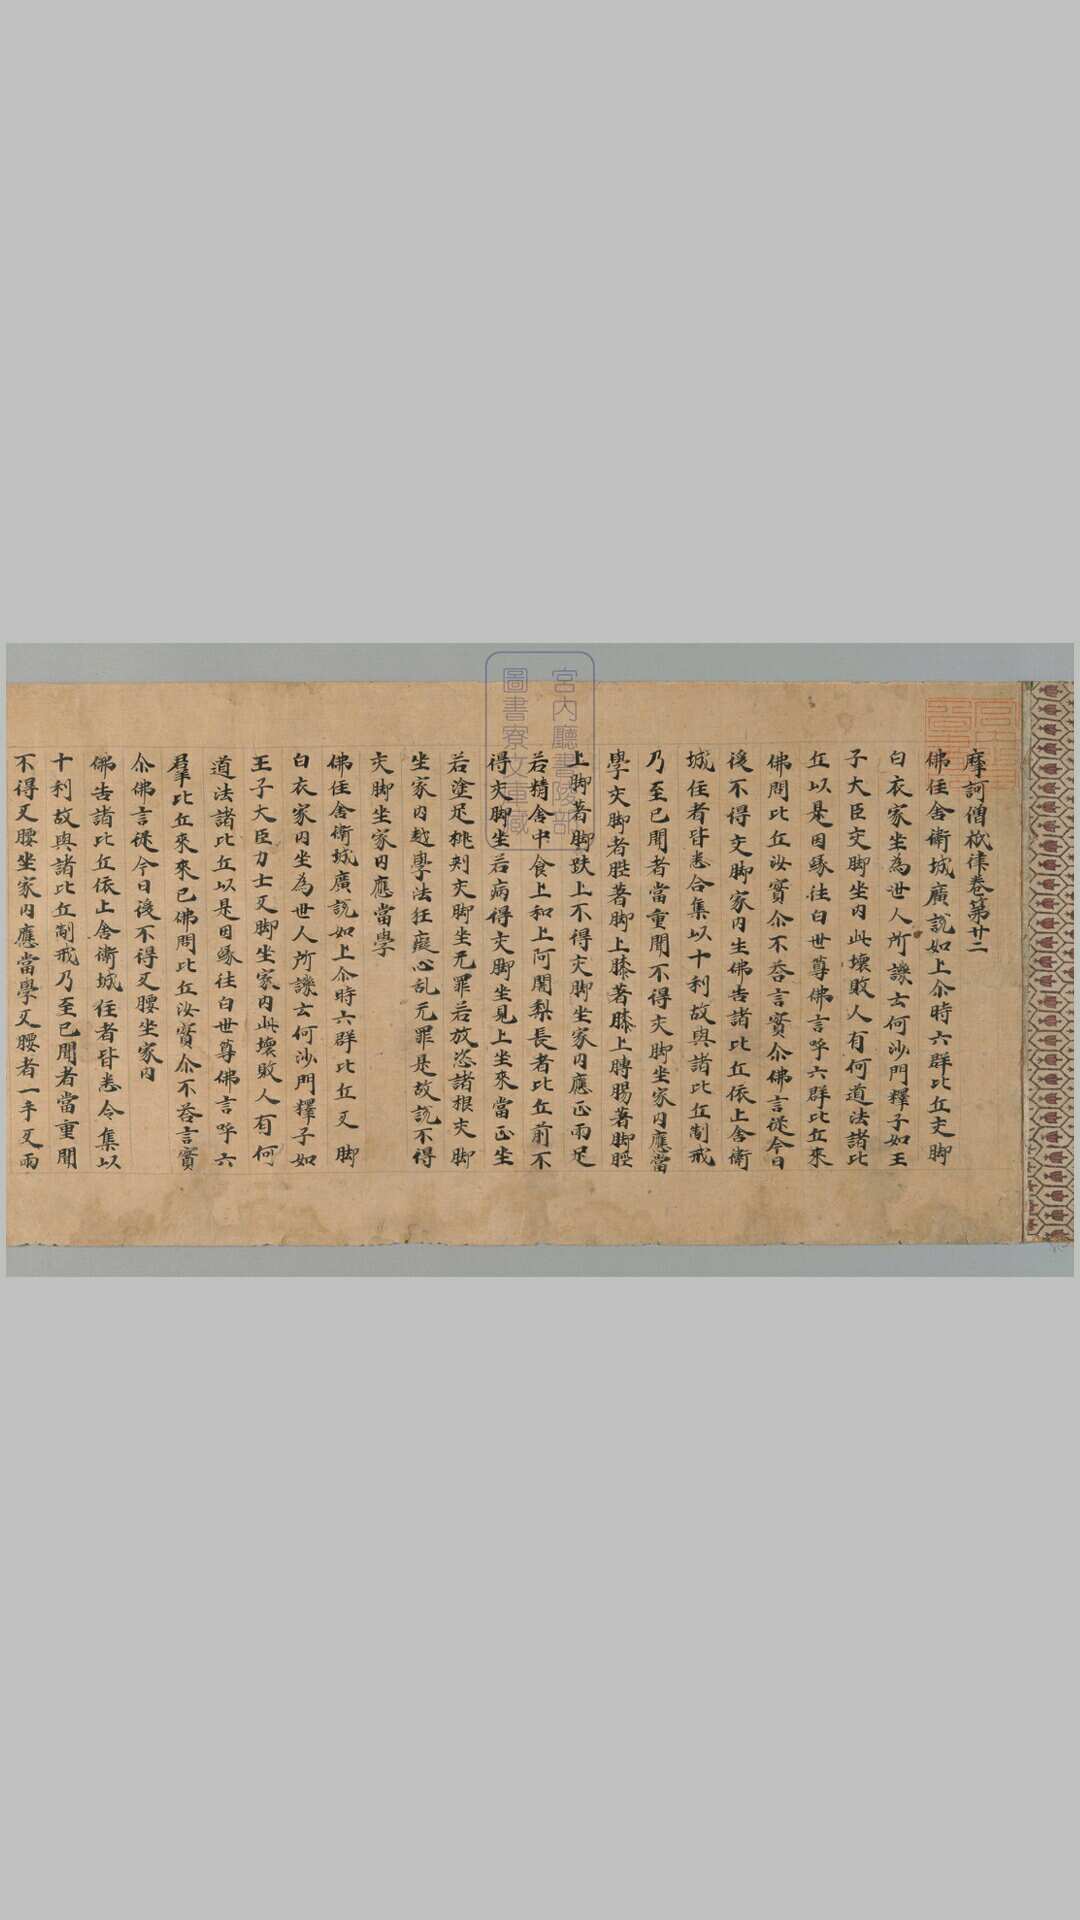 摩訶僧祇律卷第廿二
佛住舍衛城廣說如上尒時六群比丘交脚
白衣家坐為世人所譏云何沙門釋子如王
子大臣交脚坐內此壞敗人有何道法諸比
丘以是因緣往白世尊佛言呼六群比丘來
佛問比丘汝實尒不荅言實尒佛言從今日
後不得交脚家內坐佛告諸比丘依上舍衛
城住者皆悉合集以十利故與諸比丘制戒
乃至已聞者當重聞不得交脚坐家內應當
學交脚者䏶著脚上膝著膝上腨腸著脚䏶
上脚著脚趺上不得交脚坐家內應正兩足
若精舍中食上和上阿闍梨長老比丘前不
得交脚坐若病得交脚坐見上坐來當正坐
若塗足挑刺交脚坐无罪若放恣諸根交脚
坐家內越學法狂癡心乱无罪是故說不得
交脚坐家內應當學
佛住舍衛城廣說如上尒時六群比丘叉脚
白衣家內坐為世人所譏云何沙門釋子如
王子大臣力士叉脚坐家內此壞敗人有何
道法諸比丘以是因緣往白世尊佛言呼六
羣比丘來來已佛問比丘汝實尒不荅言實
尒佛言從今日後不得叉腰坐家內
佛告諸比丘依止舍衛城住者皆悉令集以
十利故與諸比丘制戒乃至已聞者當重聞
不得叉腰坐家內應當學叉腰者一手叉兩
宮內廳書陵部
圖書寮文庫藏